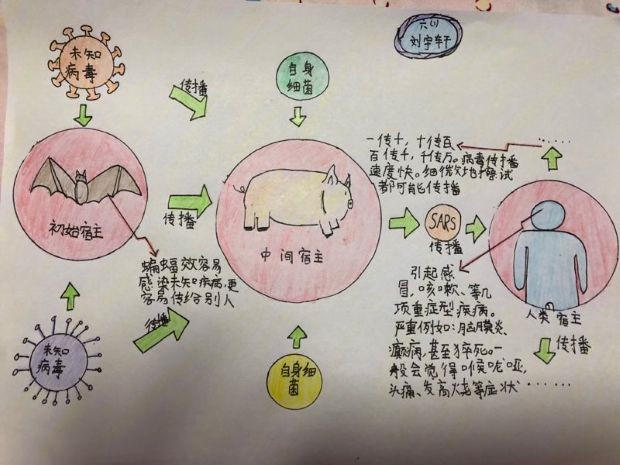 六(1)
刘宇轩
未知
病毒
传播
自身
细菌
初始宿主
传播
中间宿主
一传十，十传百
百传千，千传万。病毒传播
速度快。细微处地擦试
都可能传播
SARS
传播
人类宿主
传播
蝙蝠效容易
感染未知疾病，更
容易传给别人
引起感
冒，咳嗽、等几
项重症型疾病。
严重例如：脑膜炎、
癫痫，甚至猝死。一
般会觉得喉咙哑，
头痛、发高烧等症状……
未知
病毒
传播
自身细
菌